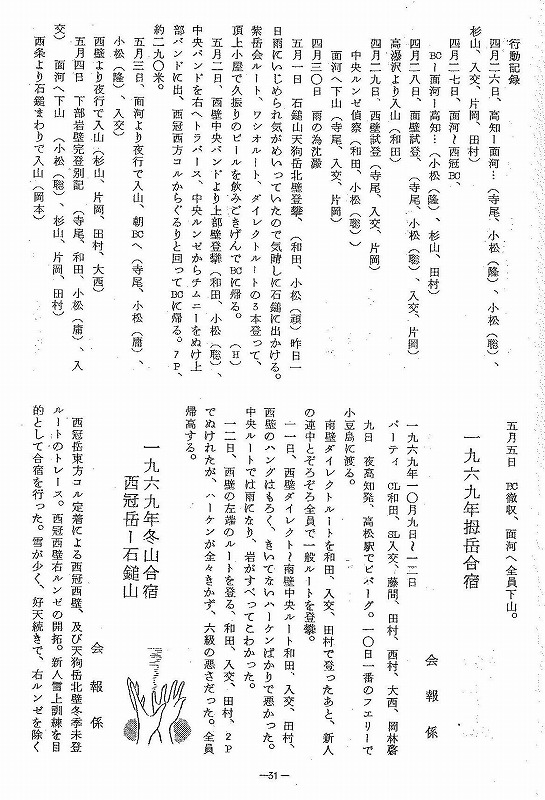 行動記録
四月二六日、高知ー面河…（寺尾、小松（隆）、小松（聡）、
杉山、入交、片岡、田村）
四月二七日、面河〜西冠BC、
BCー面河ー高知…（小松（隆）、杉山、田村）
四月二八日、西壁試登、（寺尾、小松（聡）、入交、片岡）
高瀑沢より入山（和田）
四月二九日、西壁試登（寺尾、入交、片岡）
中央ルンゼ偵察（和田、小松（聡））
面河へ下山（寺尾、入交、片岡）
四月三〇日　雨の為沈澱
五月一日　石鎚山天狗岳北壁登攀、（和田、小松（頑）昨日一
日雨にいじめられ気がめいっていたので気晴しに石鎚に出かける。
紫岳会ルート、ワシオルート、ダイレクトルートの3本登って、
頂上小屋で久振りのビールを飲みごきげんでBCに帰る。（H）
五月二日、西壁中央バンドより上部壁登攀（和田、小松（聡）、
中央バンドを右へトラバース、中央ルンゼからチムニーをぬけ上
部バンドに出、西冠西方コルからぐるりと回ってBCに帰る。7P、
約二九〇米。
五月三日、面河より夜行で入山、朝BCへ（寺尾、小松（庸）、
小松（隆）、入交）
西壁より夜行で入山（杉山、片岡、田村、大西）
五月四日　下部岩壁完登別記　（寺尾、和田、小松（庸）、入
交）　面河へ下山　（小松（聡）、杉山、片岡、田村）
西条より石鎚まわりで入山（岡本）
五月五日　BC撤収、面河へ全員下山。
一九六九年拇岳合宿
会報係
一九六九年一〇月九日〜一二日
パーティ　CL和田、SL入交、藤間、田村、西村、大西、岡林嘉
九日　夜高知発、高松駅でビバーグ。一〇日一番のフェリーで
小豆島に渡る。
南壁ダイレクトルートを和田、入交、田村で登ったあと、新人
の連中とぞろぞろ全員で一般ルートを登攀。
一一日、西壁ダイレクト〜南壁中央ルート和田、入交、田村、
西壁のハングはもろく、きいてないハーケンばかりで悪かった。
中央ルートでは雨になり、岩がすべってこわかった。
一二日、西壁の左端のルートを登る、和田、入交、田村、2P
でぬけれたが、ハーケンが全々きかず、六級の悪さだった。全員
帰高する。
一九六九年冬山合宿
西冠岳ー石鎚山
会報係
西冠岳東方コル定着による西冠西壁、及び天狗岳北壁冬季未登
ルートのトレース。西冠西壁右ルンゼの開拓。新人雪上訓練を目
的として合宿を行った。雪が少く、好天続きで、右ルンゼを除く
—31—